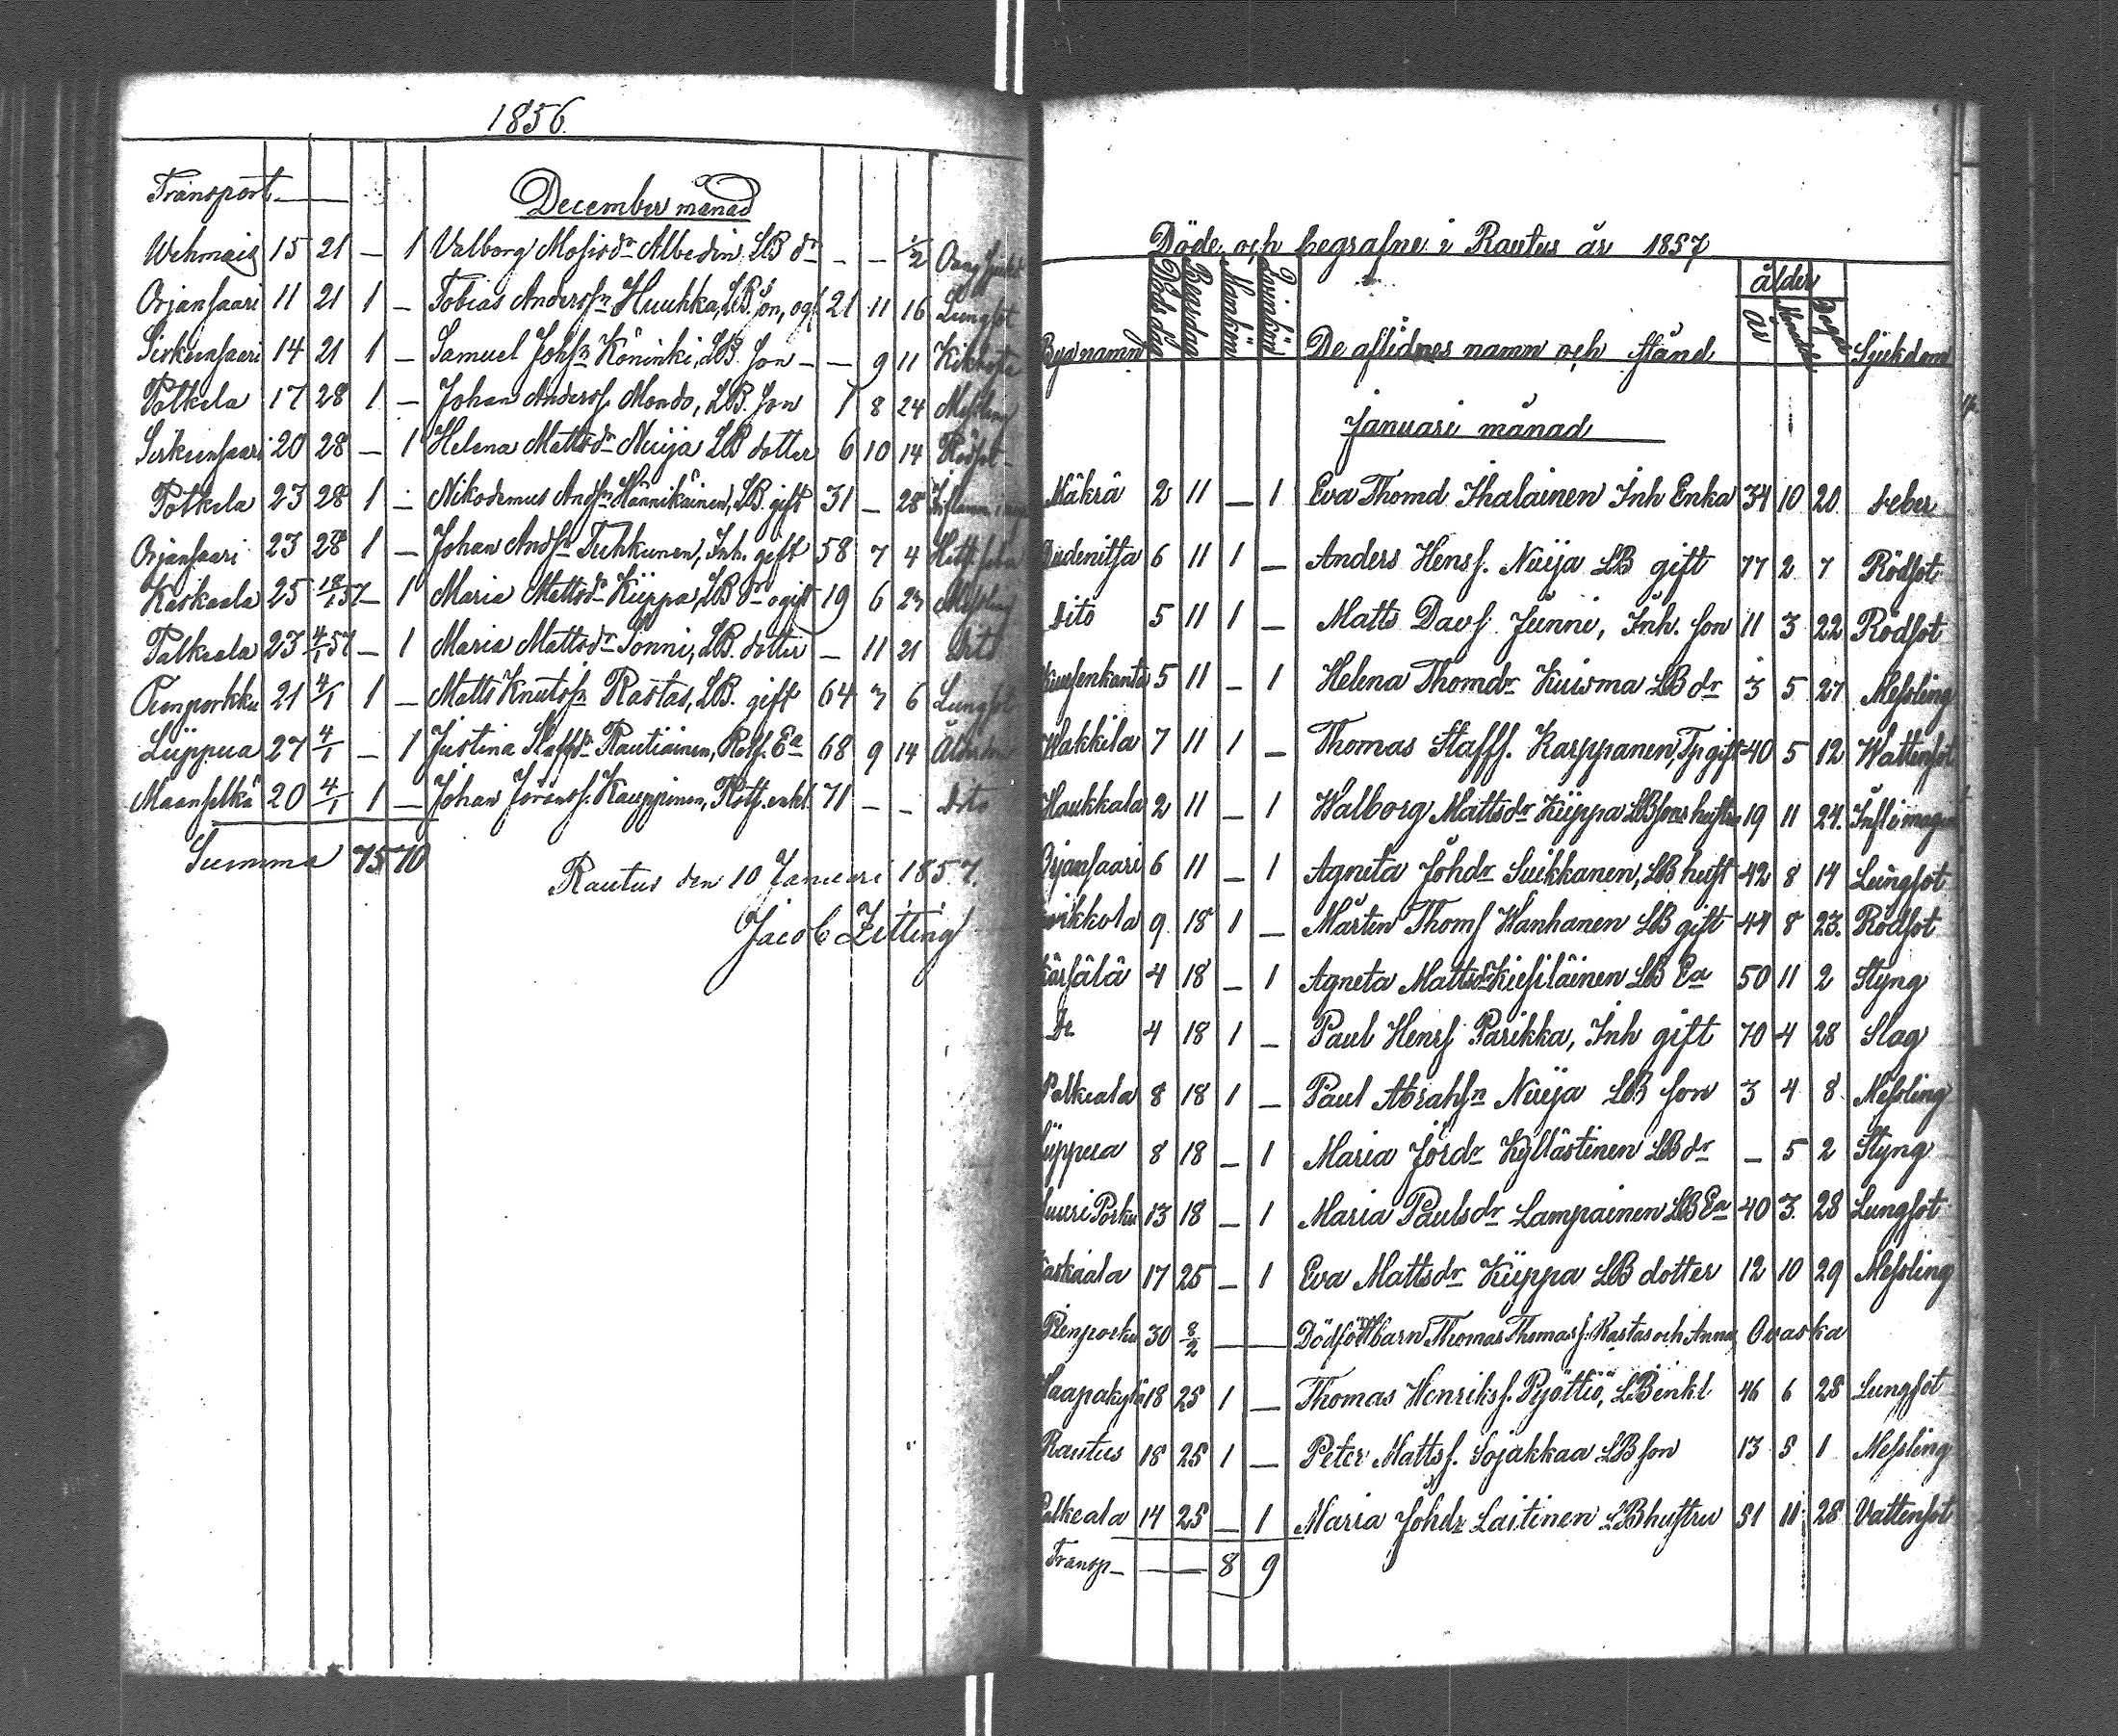 1856.
Transport
December månad
Wehmais 15 21 — 1 Valborg Mosisdr Albedin LB dr — — 1/2
Orjansaari 11 21 1 — Tobias Anderssn Huuhka, LB. son, ogf 21 11 16 Lungsot
Sirkunsaari 14 21 1 — Samuel Johssn Köninki, LB. son — — 9 11 Kikhosta
Potkela 17 28 1 — Johan Anderss. Mondo, LB. son 1 8 24 Messling
Sirkunsaari 20 28 — 1 Helena Mattsdr Nuija LB dotter 6 10 14 Rödsot
Potkela 23 28 1 — Nikodemus Andsn Hännikäinen, LB. gift 31 — 28
Orjansaari 23 28 1 — Johan Andsn Tuhkunen, Inh. gift 58 7 4
Kaskaala 25 18/1 57 — 1 Maria Mattsdr Kiippa, LB dr ogift 19 6 23 Messling
Palkeala 23 4/1 57 — 1 Maria Mattsdr Sonni, LB. dotter — 11 21 Dito
Pienporkku 21 4/1 1 — Matts Knutssn Rastas, LB. gift 64 3 6 Lungsot
Liippua 27 4/1 — 1 Justina Staffsdr Rautiainen, Rotf. Ea 68 9 14
Maanselkä 20 4/1 1 — Johan Jöranss. Kauppinen, Rotf. enkl. 71 — — Dito
Summa 75 70
Rautus den 10 Januari 1857.
Jacob Zitting
Döde och begrafne i Rautus år 1857
ålder
Byanamn Döds dag Begr.dag Mankön Qvinkön De aflidnes namn och stånd år Månader Dagar Sjukdom
Januari månad
Mäkrä 2 11 — 1 Eva Thomd Ihalainen Inh Enka 34 10 20 Feber
6 11 1 — Anders Hens. Nuija LB gift 77 2 7 Rödsot
Dito 5 11 1 — Matts Davs. Junni, Inh. son 11 3 22 Rödsot
5 11 — 1 Helena Thomdr Kuisma LB dr 3 5 27 Messling
Wakkila 7 11 1 — Thomas Staffs. Karppanen, Tp. gift 40 5 12 Wattensot
Haukkala 2 11 — 1 Walborg Mattsdr Kiippa LBsons hustru 19 11 24. Infl i magen
Orjansaari 6 11 — 1 Agneta Johdr Suikkanen, LB hust 42 8 14 Lungsot
9 18 1 — Mårten Thoms Wanhanen LB gift 44 8 23. Rödsot
4 18 — 1 Agneta Mattsdr Kiesiläinen LB Ea 50 11 2 Styng
Do 4 18 1 — Paul Henrs Parikka, Inh gift 70 4 28 Slag
Palkeala 8 18 1 — Paul Abrahsn Nuija LB son 3 4 8 Messling
Liippua 8 18 — 1 Maria Jördr Kyllästinen LB dr — 5 2 Styng
Suuri Porku 13 18 — 1 Maria Paulsdr Lampainen LB Ea 40 3. 28 Lungsot
Kaskaala 17 25 — 1 Eva Mattsdr Kiippa LB dotter 12 10 29 Messling
Pienporku 30 8/2 — — Dödfödt barn Thomas Thomass. Rastas och Anna Ovaska
Haapakylä 18 25 1 — Thomas Henrikss. Pyöttiö, LB enkl 46 6 28 Lungsot
Rautus 18 25 1 — Peter Mattss. Sojakkaa LB son 13 5 1 Messling
Palkeala 14 25 — 1 Maria Johdr Laitinen LB hustru 51 11 28 Vattensot
Transp — — — 8 9